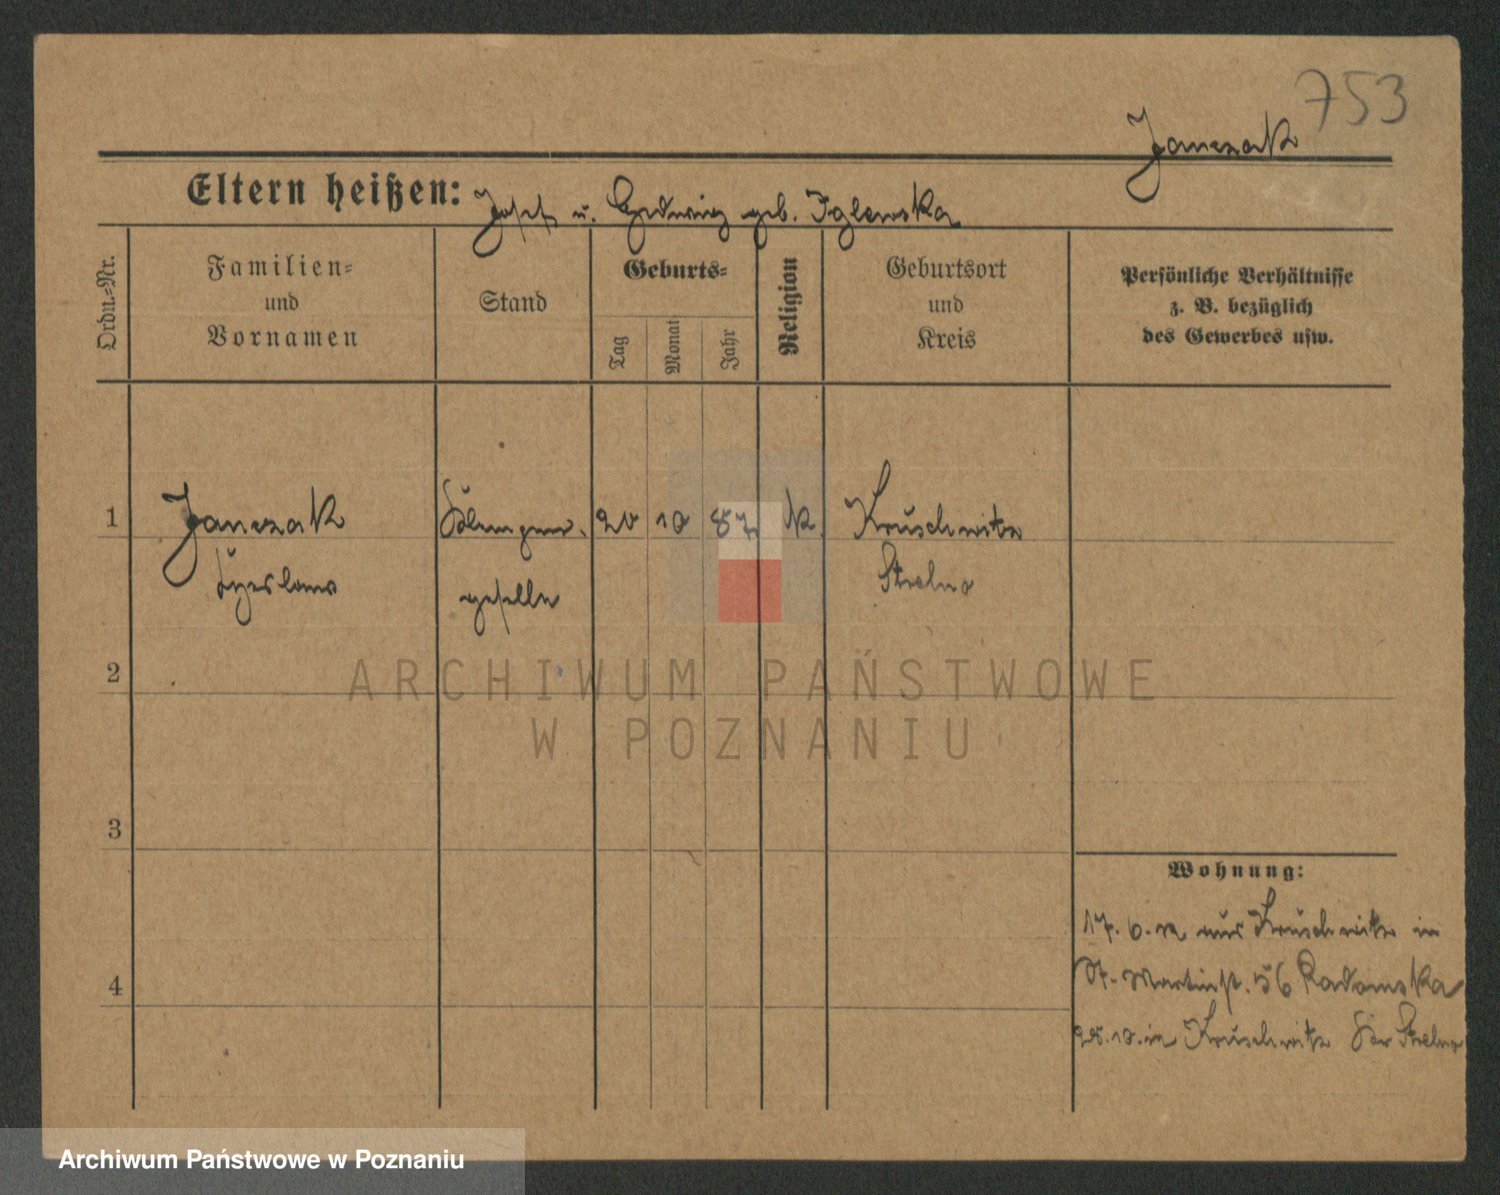 753
Janczak
Eltern heißen: Josef u. Hedwig geb. Iglewska
Ordn.-Nr.
Familien-
und
Vornamen
Stand
Geburts-
Tag
Monat
Jahr
Religion
Geburtsort
und
Kreis
Persönliche Verhältnisse
z. B. bezüglich
des Gewerbes usw.
1
Janczak
20 10 87 k.
Kruschwitz
geselle
Strelno
2
ARCHIWUM PAŃSTWOWE
W POZNANIU
3
Wohnung:
17. 6. aus Kruschwitz in
St. Martinst. 56 Radomska
4
in Kruschwitz Strelno
Archiwum Państwowe w Poznaniu